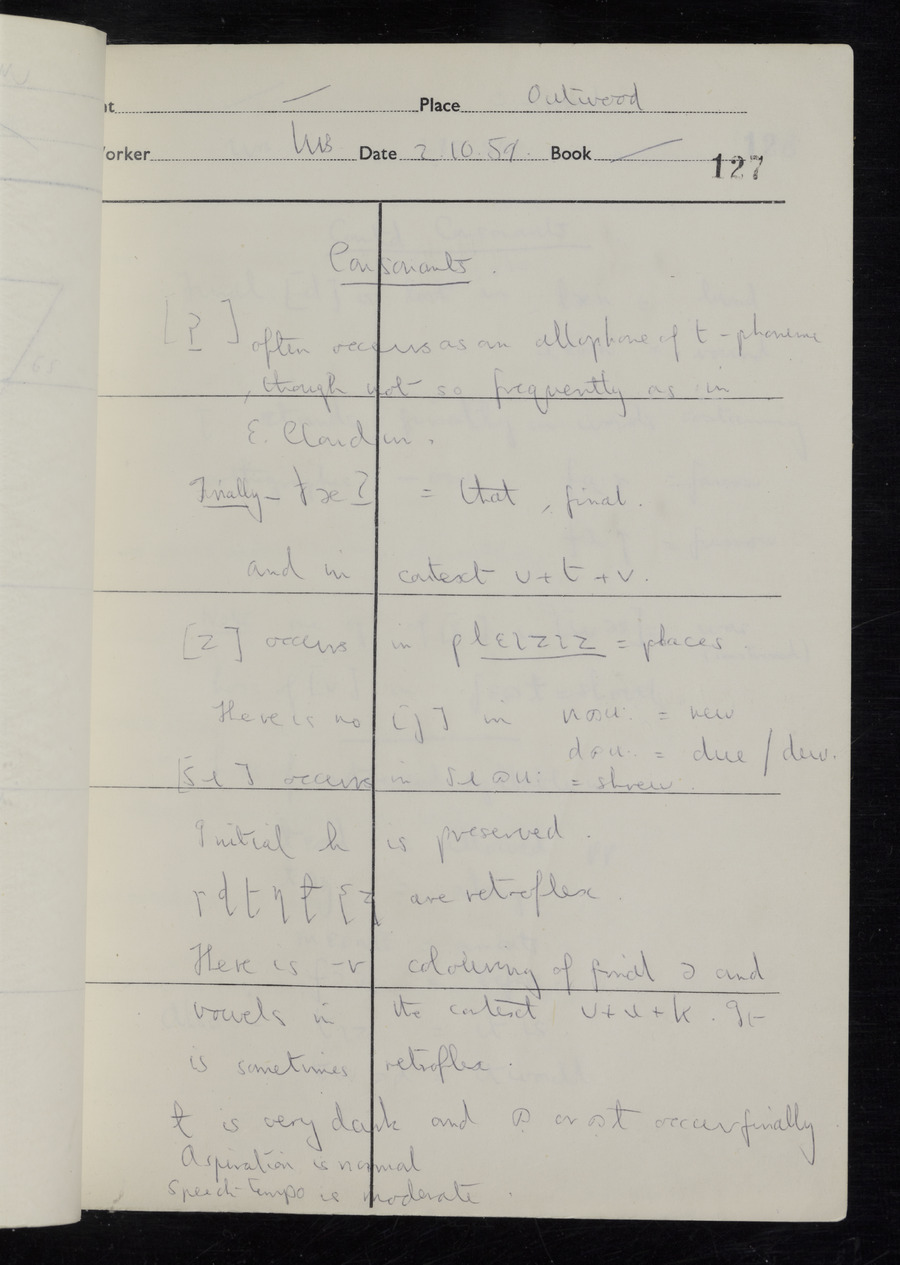 nt Place Outwood
orker Date 2.10.59. Book
127
Consonants.
[ʔ] often occurs as an allophone of t-phoneme
, though not so frequently as in
E. Clandon.
Finally – ðæʔ = that, final.
and in context v + t + v.
[z] occurs in plɛɪzɪz = places
There is no [j] in nəu: = new
dəu: = due / dew.
[ʃɹ] occurs in ʃɹəu: = shrew.
Initial h is preserved.
are retroflex.
There is -r colouring of final ə and
vowels in the context v + ɹ + k. It
is sometimes retroflex.
ɫ is very dark and occur finally
Aspiration is normal
Speech-tempo is moderate.